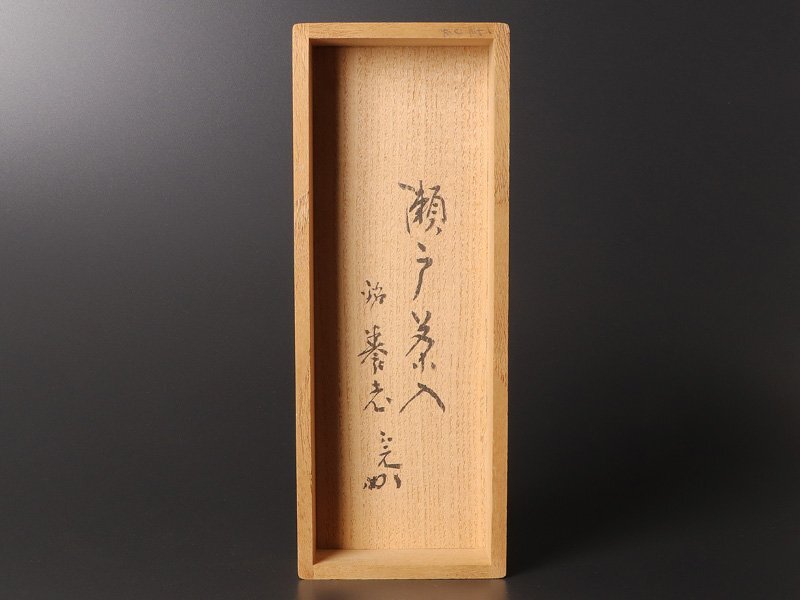 瀬戸茶入
銘 養老